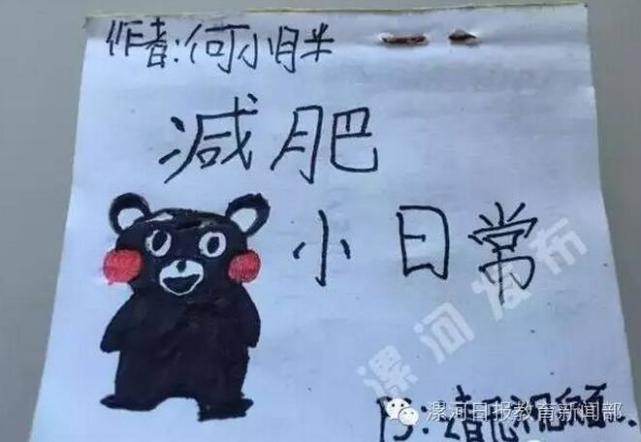 作者:何小胖
减肥
小日常
漯河发布
PS:
漯河日报教育新闻部